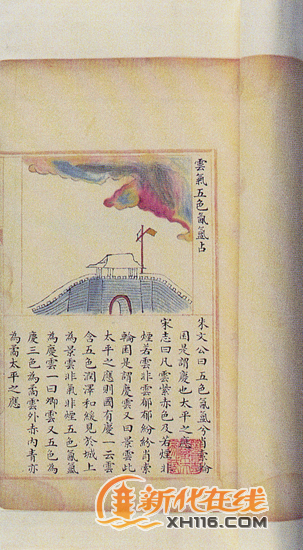 雲氣五色氤氳占
朱文公曰五色氤氳兮肖索綸
囷是謂慶也太平之應
宋志曰凡雲紫赤色及若煙非
煙若雲非雲郁郁紛紛肖索
輪囷是謂慶雲又曰景雲此
太平之應則國有慶一云雲
含五色潤澤和緩見於城上
為景雲非氣非煙五色氤氳
為慶雲一曰卿雲又五色為
慶三色為矞雲外赤內青亦
為矞太平之應
新化在线
XH116.COM